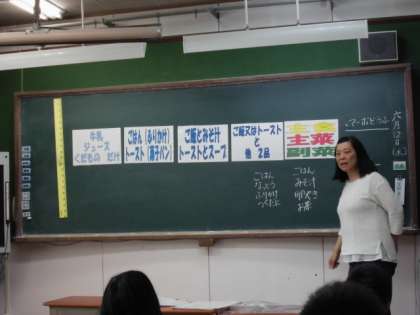 牛乳
ジュース
くだもの だけ
ごはん（ふりかけ）
トースト（菓子パン）
ご飯とみそ汁
トーストとスープ
ご飯又はトースト
と
他 2品
主食
主菜
副菜
六月12日(木)
ごはん
なっとう
ふりかけ
つくだに
ごはん
みそ汁
卵やき
お茶